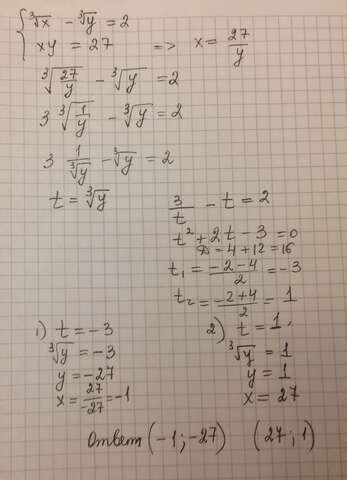 { ∛x - ∛y = 2
xy = 27 => x = 27/y
∛(27/y) - ∛y = 2
3 ∛(1/y) - ∛y = 2
3 1/∛y - ∛y = 2
t = ∛y
3/t - t = 2
t² + 2t - 3 = 0
D = 4 + 12 = 16
t₁ = (-2-4)/2 = -3
t₂ = (-2+4)/2 = 1
1) t = -3
∛y = -3
y = -27
x = 27/-27 = -1
2) t = 1,
∛y = 1
y = 1
x = 27
Ответ (-1; -27) (27; 1)